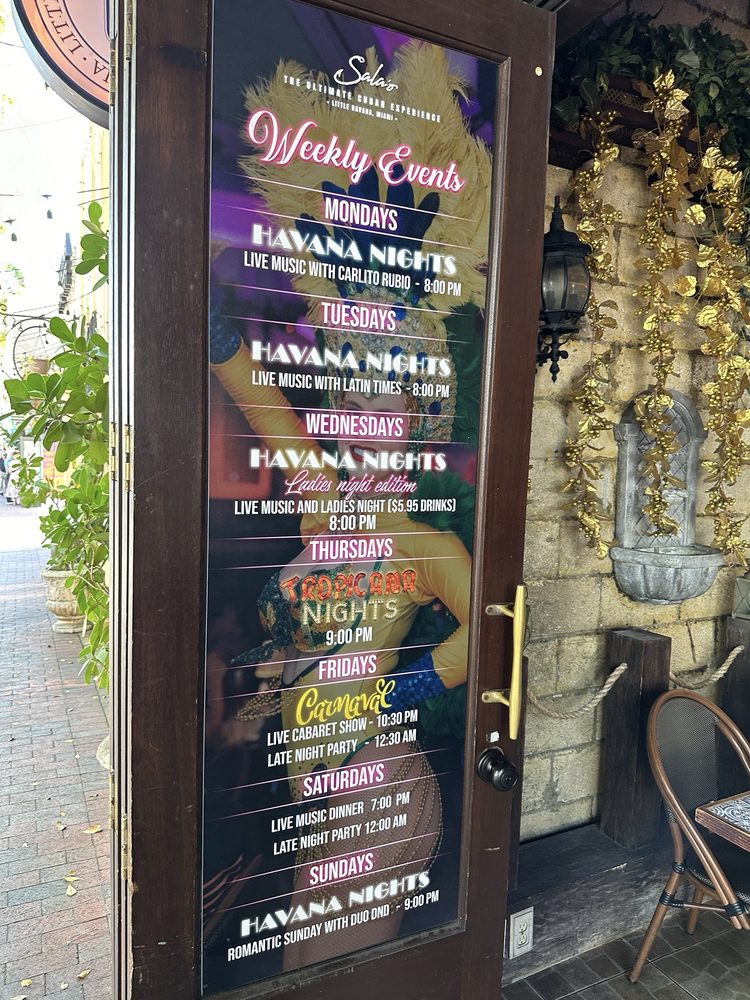 Sala'o
THE ULTIMATE CUBAN EXPERIENCE
- LITTLE HAVANA, MIAMI -
Weekly Events
MONDAYS
HAVANA NIGHTS
LIVE MUSIC WITH CARLITO RUBIO - 8:00 PM
TUESDAYS
HAVANA NIGHTS
LIVE MUSIC WITH LATIN TIMES - 8:00 PM
WEDNESDAYS
HAVANA NIGHTS
Ladies night edition
LIVE MUSIC AND LADIES NIGHT ($5.95 DRINKS)
8:00 PM
THURSDAYS
TROPICANA
NIGHTS
9:00 PM
FRIDAYS
Carnaval
LIVE CABARET SHOW - 10:30 PM
LATE NIGHT PARTY - 12:30 AM
SATURDAYS
LIVE MUSIC DINNER 7:00 PM
LATE NIGHT PARTY 12:00 AM
SUNDAYS
HAVANA NIGHTS
ROMANTIC SUNDAY WITH DUO DND - 9:00 PM